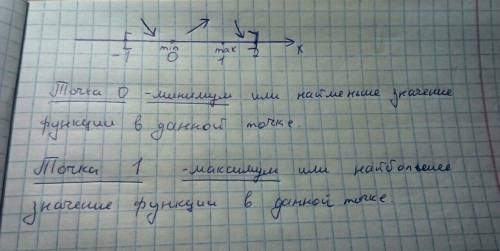 min max
-1 0 1 2 x
Точка 0 -минимум или наименьше значение
функции в данной точке.
Точка 1 -максимум или наибольшее
значение функции в данной точке.